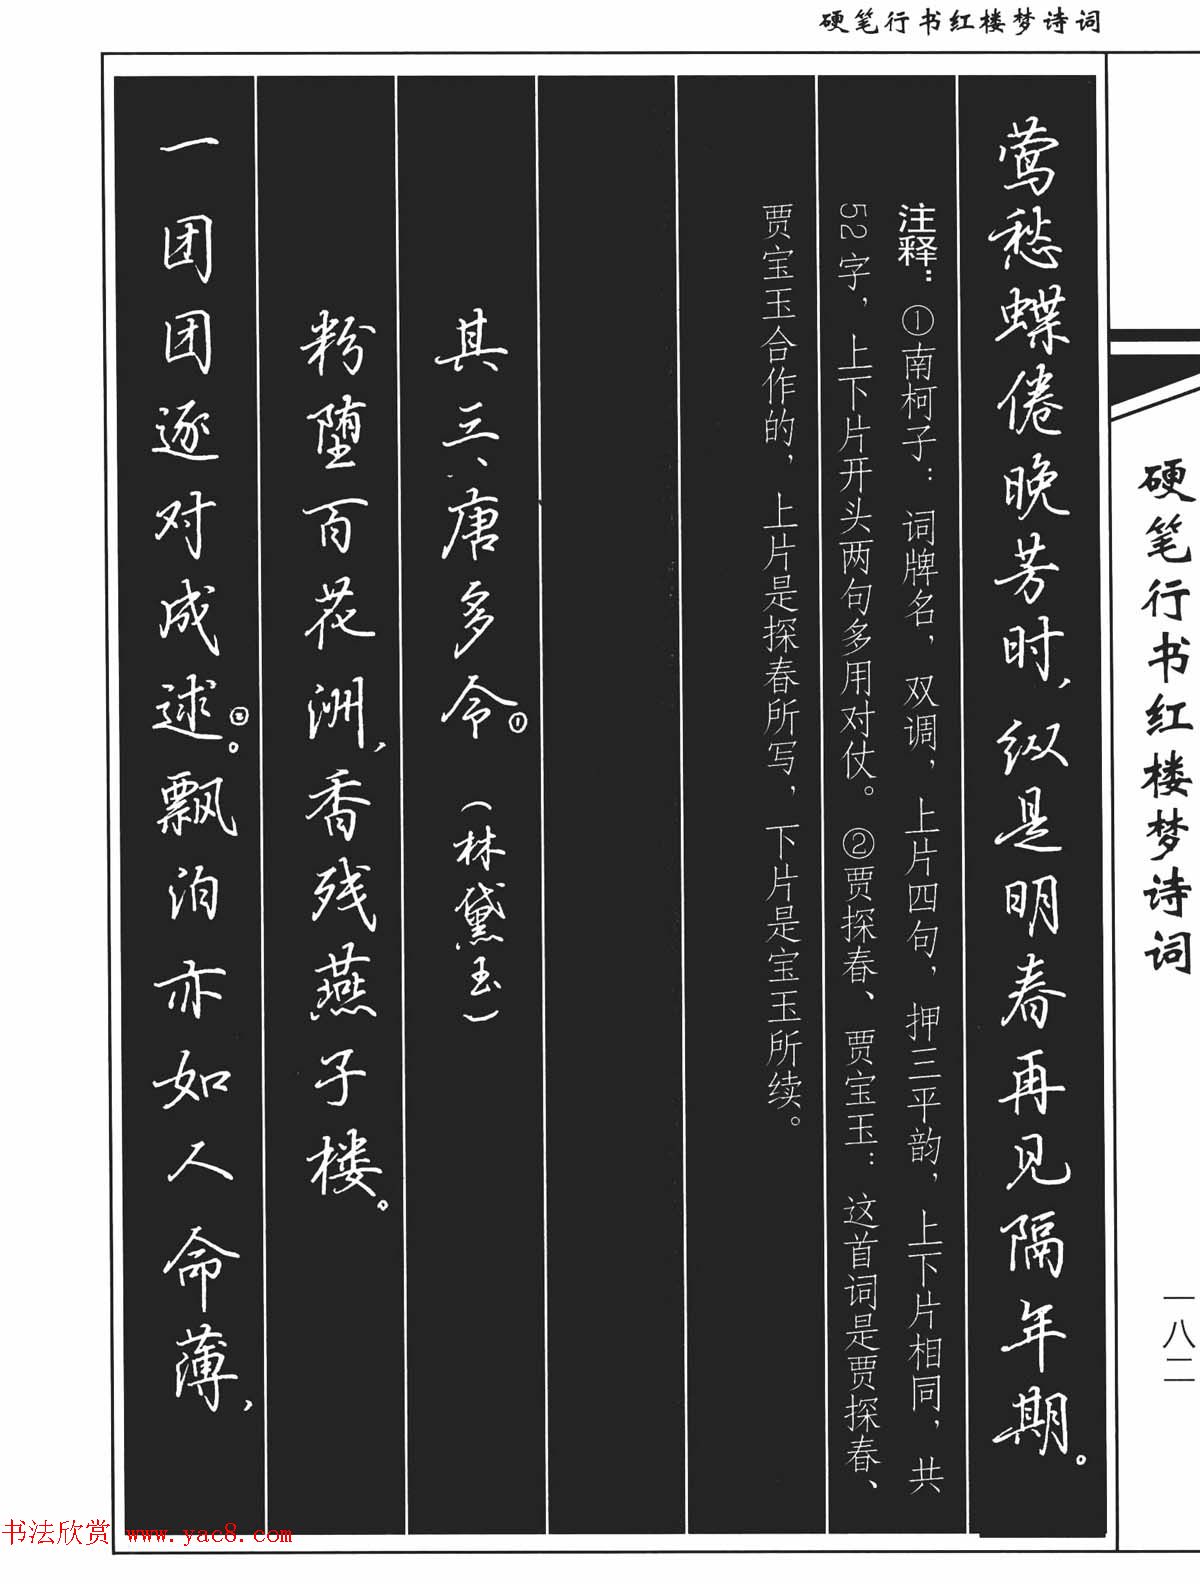 硬笔行书红楼梦诗词
硬笔行书红楼梦诗词
一八二
莺愁蝶倦晚芳时，纵是明春再见隔年期。
注释：①南柯子：词牌名，双调，上片四句，押三平韵，上下片相同，共
52字，上下片开头两句多用对仗。②贾探春、贾宝玉：这首词是贾探春、
贾宝玉合作的，上片是探春所写，下片是宝玉所续。
其三、唐多令①。（林黛玉）
粉堕百花洲，香残燕子楼。
一团团逐对成逑②。飘泊亦如人命薄，
书法欣赏 www.yac8.com